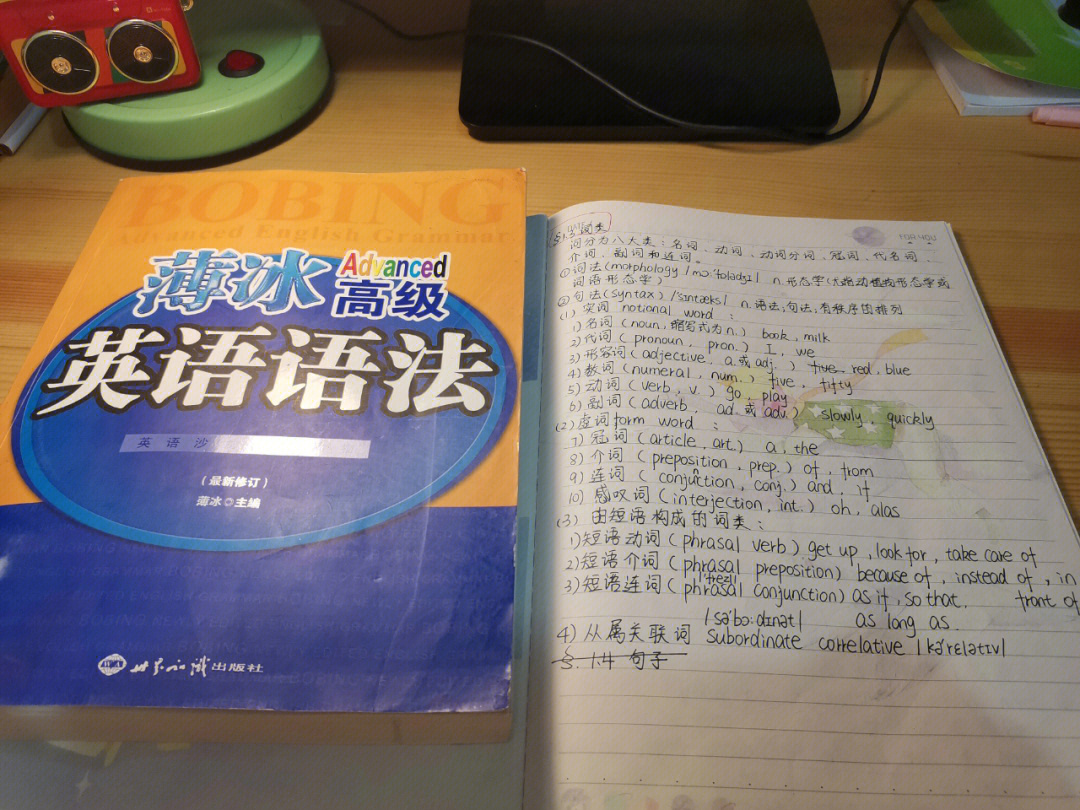 BOBING
Advanced English Grammar
薄冰 Advanced
高级
英语语法
英语沙
(最新修订)
薄冰◎主编
世界知识出版社
FOR YOU
§1.3 词类
词分为八大类:名词、动词、动词分词、冠词、代名词、
介词、副词和连词。
①词法(morphology /mɔ:'fɒlədʒɪ/ n.形态学(尤指动植物形态学或
词语形态学)
②句法(syntax) /'sɪntæks/ n.语法;句法;有秩序的排列
(1) 实词 notional word :
1)名词(noun,缩写式为n.) book, milk
2)代词(pronoun, pron.) I, we
3)形容词(adjective, a.或adj.) five, red, blue
4)数词(numeral, num.) five, fifty
5)动词(verb, v.) go, play
6)副词(adverb, ad.或adv.) slowly, quickly
(2)虚词form word :
7)冠词(article, art.) a, the
8)介词(preposition, prep.) of, from
9)连词(conjunction, conj.) and, if
10)感叹词(interjection, int.) oh, alas
(3)由短语构成的词类:
1)短语动词(phrasal verb) get up, look for, take care of
2)短语介词(phrasal preposition) because of, instead of, in
front of
3)短语连词(phrasal conjunction) as if, so that.
as long as.
/sə'bɔ:dɪnət/
4)从属关联词 subordinate correlative /kə'relətɪv/
§.1.4 句子